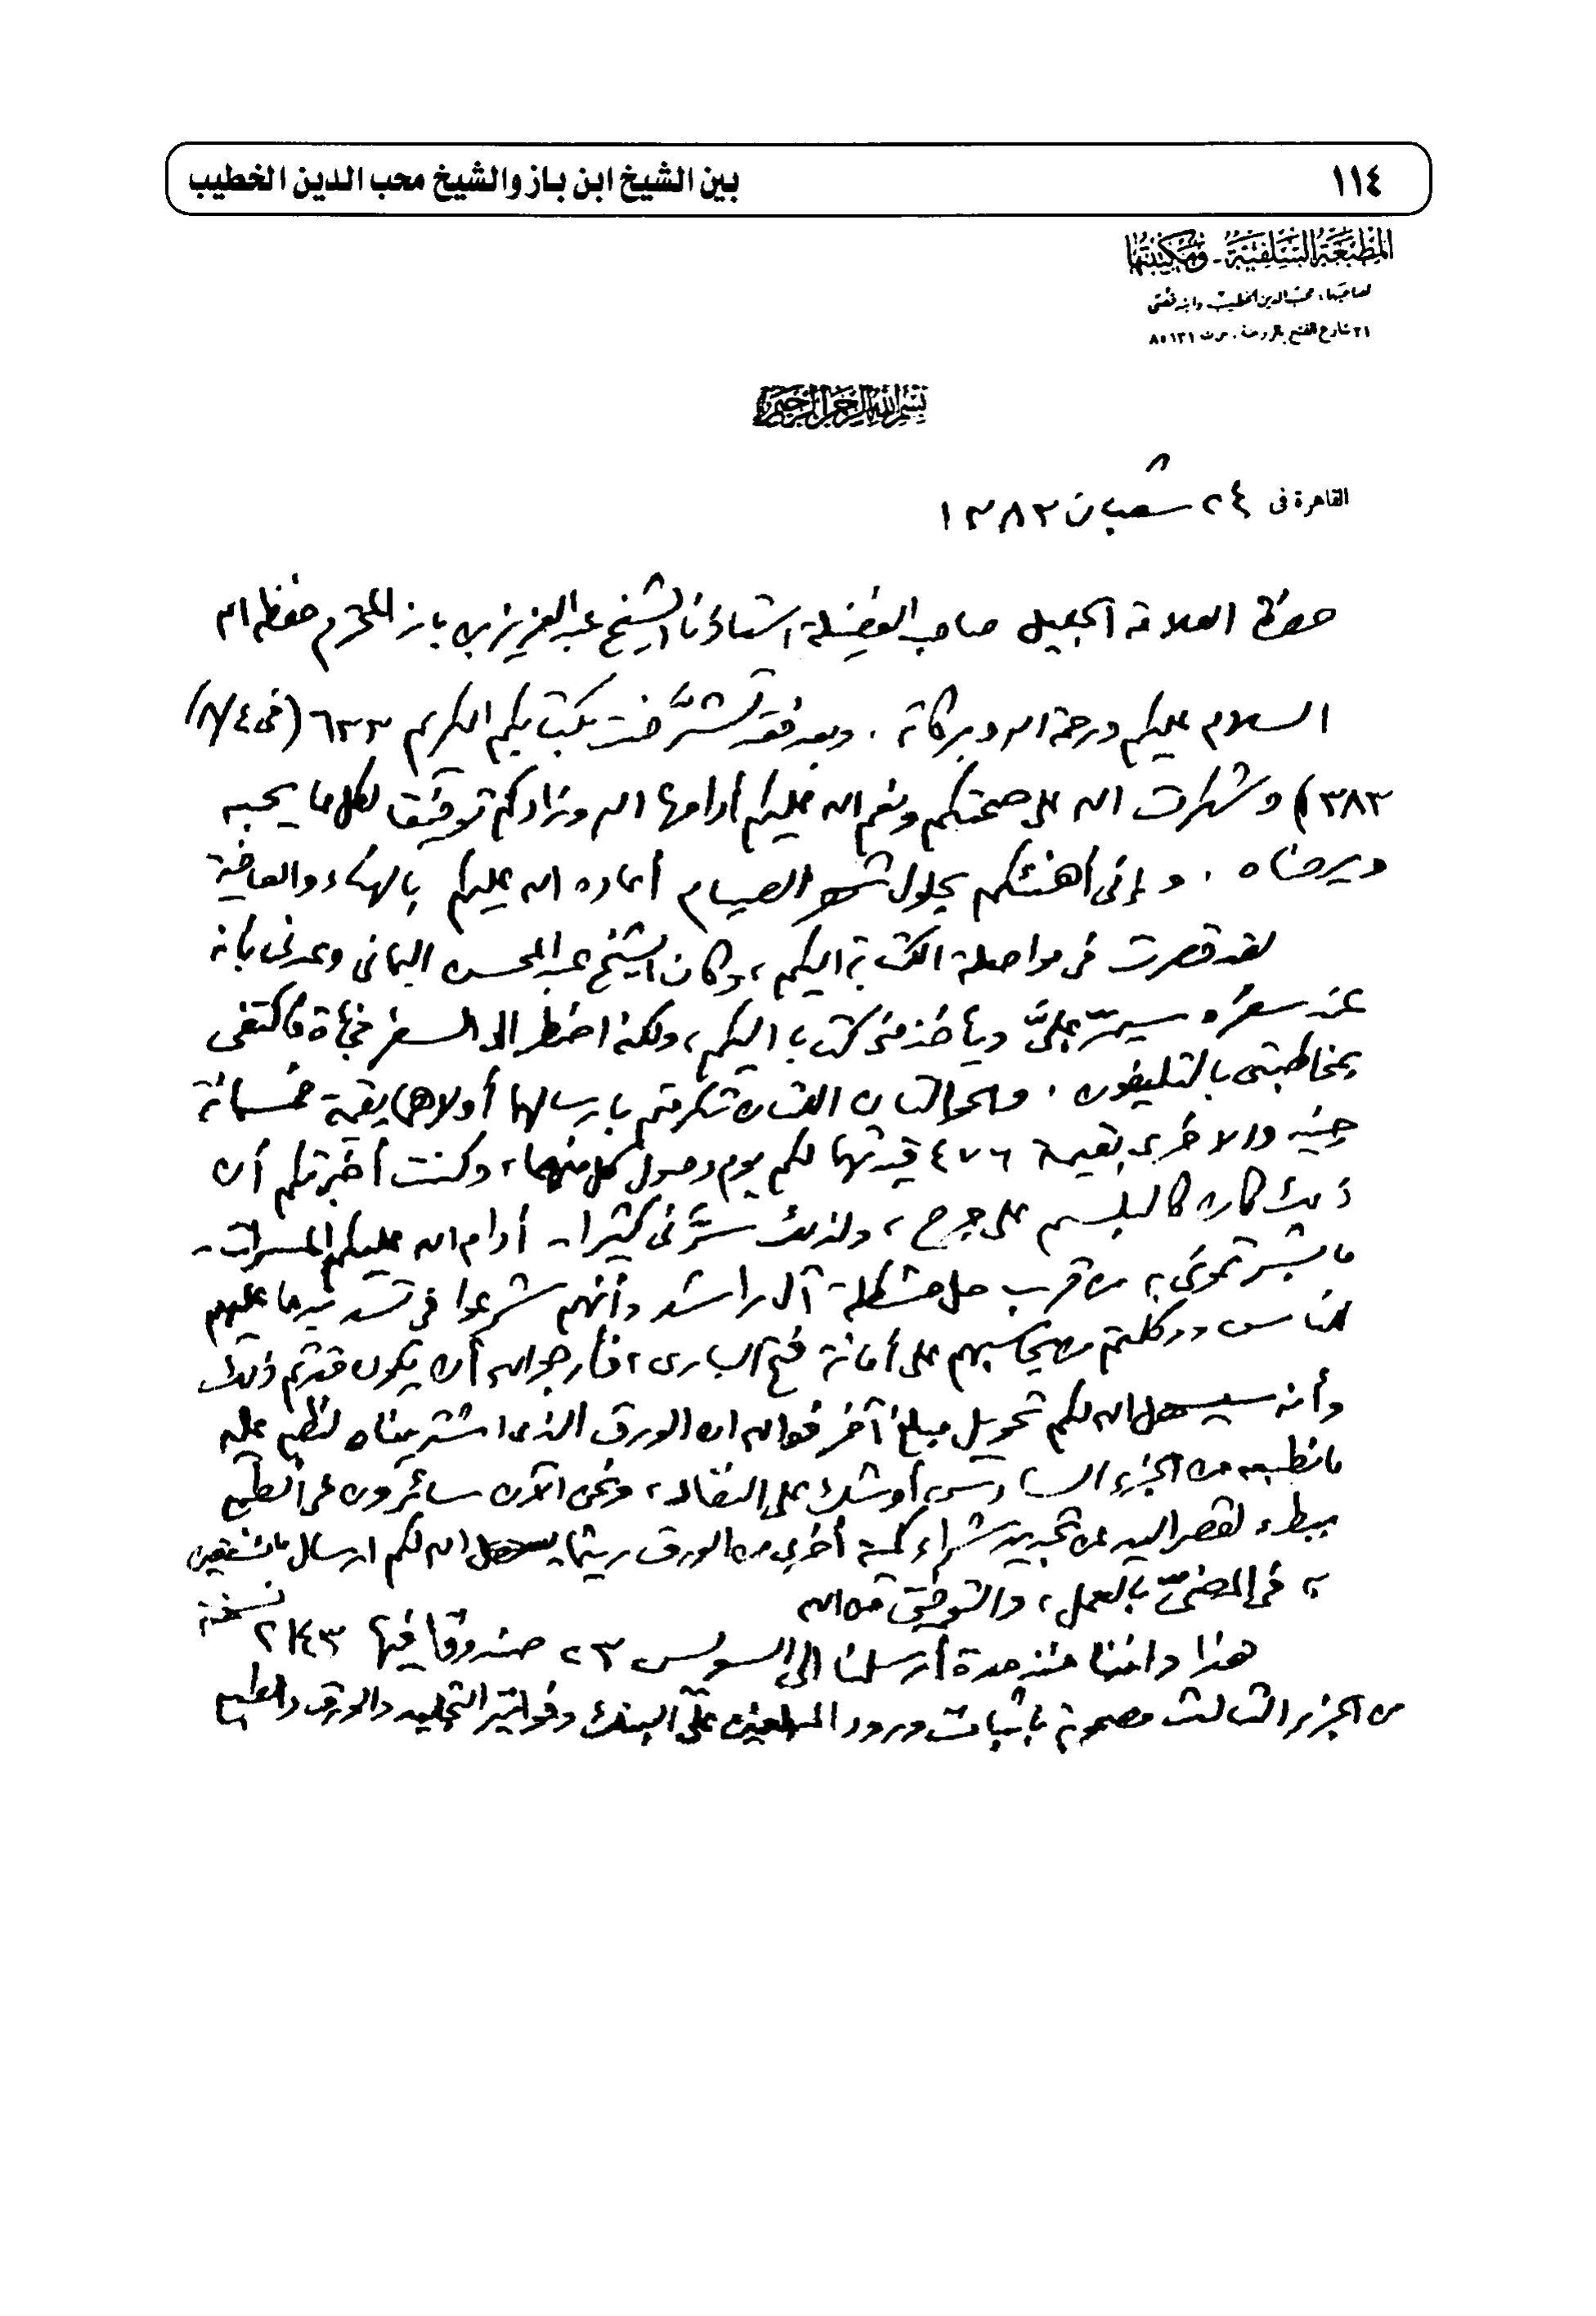 ١١٤
بين الشيخ ابن باز والشيخ محب الدين الخطيب
المطبعة السلفية - ومكتبتها
لصاحبها: محب الدين الخطيب
٢١ شارع الفتح بالروضة. ت ٨٥١٢١
بسم الله الرحمن الرحيم
٨
القاهرة فى ٢٤ شعبان ١٣٨٣
حضرة العلامة الجليل صاحب الفضيلة استاذنا الشيخ عبد العزيز بن باز المحترم حفظه الله
السلام عليكم ورحمة الله وبركاته . وبعد فقد تشرَّفت بكتابكم الكريم ٦٣٣ (فى ٨/٤/
٣٨٣) وشكرت الله على صحتكم ونعم الله عليكم أدامها الله وزادكم توفيقا لكل ما يحبه
ويرضاه . وإنى أهنئكم بحلول شهر الصيام أعاده الله عليكم بالهناء والعافية
لقد قصرت فى مواصلة الكتابة اليكم ، وكان الشيخ عبد المحسن اليمانى وعدنى بأنه
عند سفره سيمرّ علىَّ ويأخذ منى كتابا اليكم ، ولكنه اضطر الى السفر فجأة فاكتفى
بمخاطبتى بالتليفون . والحوالتان اللتان تكرمتم بارسالها أولاهما بقيمة خمسمائة
جنيه والاخرى بقيمة ٤٧٦ قيدتهما لكم يوم وصول كل منهما ، وكنت أخبرتكم أن
ذلك كان كالبلسم على جرح ، ولذلك سرَّنى كثيرا - أدام الله عليكم المسرات -
ما بشرتمونى به من قرب حل مشكلة آل راشد وأنهم شرعوا فى تسديد ما عليهم
للناس ووكلتم من يحاسبهم على أمانة فتح البارى ، فأرجو الله أن يكون قد تم ذلك
وأنه سيسهل الله لكم تحويل مبلغ آخر فوالله ان الورق الذى اشتريناه لنطبع عليه
ما نطبعه من الجزء السادس أوشك على النفاد ، ونحن الآن سائرون فى الطبع
ببطء لقصر اليد عن تجديد شراء كمية أخرى من الورق ريثما يسهل الله لكم ارسال ما نستعين
به فى المضىّ بالعمل ، والتوفيق من الله
هذا واننا منذ مدة أرسلنا الى السويس ٢٣ صندوقا فيها ٢١٤٣ نسخة
من الجزء الثالث مصحوبة باثبات ورود المبلغين على البنك وفواتير التجليد والورق والطبع